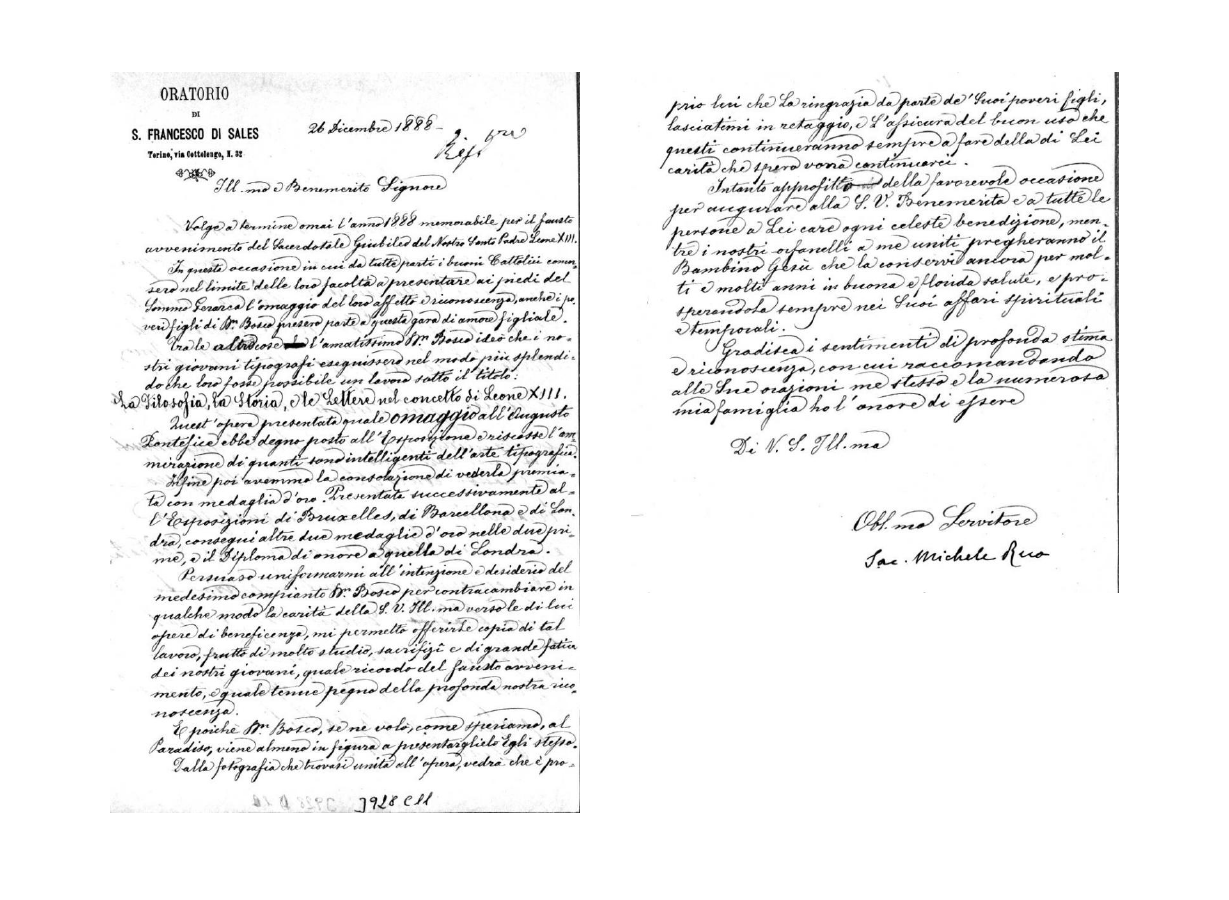 ORATORIO
DI
S. FRANCESCO DI SALES
Torino, via Cottolengo, N. 32
26 Dicembre 1888-
Ill.mo e Benemerito Signore
Volge a termine omai l'anno 1888 memorabile per il fausto
avvenimento del Sacerdotale Giubileo del Nostro Santo Padre Leone XIII.
In questa occasione in cui da tutte parti i buoni Cattolici comin-
sero nel limite delle loro facoltà a presentare ai piedi del
Sommo Gerarca l'omaggio del loro affetto e riconoscenza, anche i po-
veri figli di Dn Bosco presero parte a questa gara di amore figliale.
Tra le altre cose l'amatissimo Dn Bosco ideò che i no-
stri giovani tipografi eseguissero nel modo più splendi-
do che loro fosse possibile un lavoro sotto il titolo:
La Filosofia, la Storia, e le Lettere nel concetto di Leone XIII.
Quest'opera presentata quale omaggio all'Augusto
Pontefice ebbe degno posto all'Esposizione e riscosse l'am-
mirazione di quanti sono intelligenti dell'arte tipografica.
Infine poi avemmo la consolazione di vederla premia-
ta con medaglia d'oro. Presentata successivamente al-
l'Esposizioni di Bruxelles, di Barcellona e di Lon-
dra, conseguì altre due medaglie d'oro nelle due pri-
me, e il Diploma di onore a quella di Londra.
Persuaso uniformarmi all'intenzione e desiderio del
medesimo compianto Dn Bosco per contracambiare in
qualche modo la carità della S. V. Ill.ma verso le di lui
opere di beneficenza, mi permetto offerirle copia di tal
lavoro, frutto di molto studio, sacrifizi e di grande fatica
dei nostri giovani, quale ricordo del fausto avveni-
mento, e quale tenue pegno della profonda nostra rico-
noscenza.
E poichè Dn Bosco, se ne volò, come speriamo, al
Paradiso, viene almeno in figura a presentarglielo Egli stesso.
Dalla fotografia che trovasi unita all'opera, vedrà che è pro-
J928 C11
prio lui che La ringrazia da parte de' Suoi poveri figli,
lasciatimi in retaggio, e L'assicura del buon uso che
questi continueranno sempre a fare della di Lei
carità che spero vorrà continuarci.
Intanto approfitto della favorevole occasione
per augurare alla S. V. Benemerita e a tutte le
persone a Lei care ogni celeste benedizione, men-
tre i nostri orfanelli a me uniti pregheranno il
Bambino Gesù che la conservi ancora per mol-
ti e molti anni in buona e florida salute, e pro-
sperandola sempre nei Suoi affari spirituali
e temporali.
Gradisca i sentimenti di profonda stima
e riconoscenza, con cui raccomandando
alle Sue orazioni me stesso e la numerosa
mia famiglia ho l'onore di essere
Di V. S. Ill.ma
Obl.mo Servitore
Sac. Michele Rua